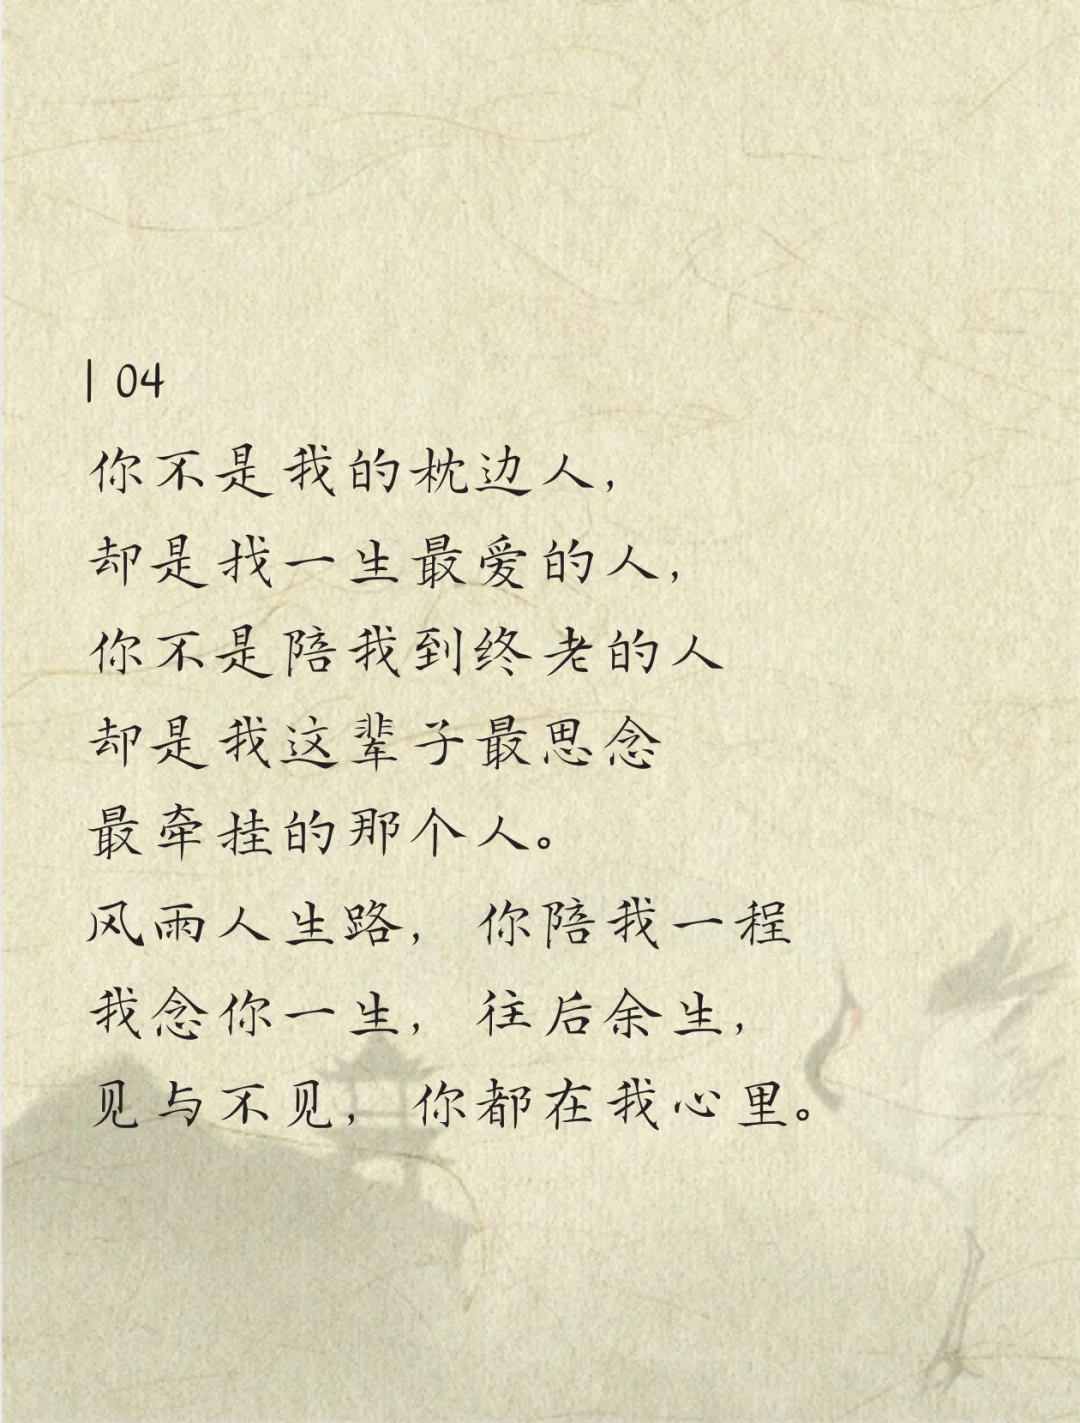 | 04
你不是我的枕边人，
却是找一生最爱的人，
你不是陪我到终老的人
却是我这辈子最思念
最牵挂的那个人。
风雨人生路， 你陪我一程
我念你一生， 往后余生，
见与不见， 你都在我心里。